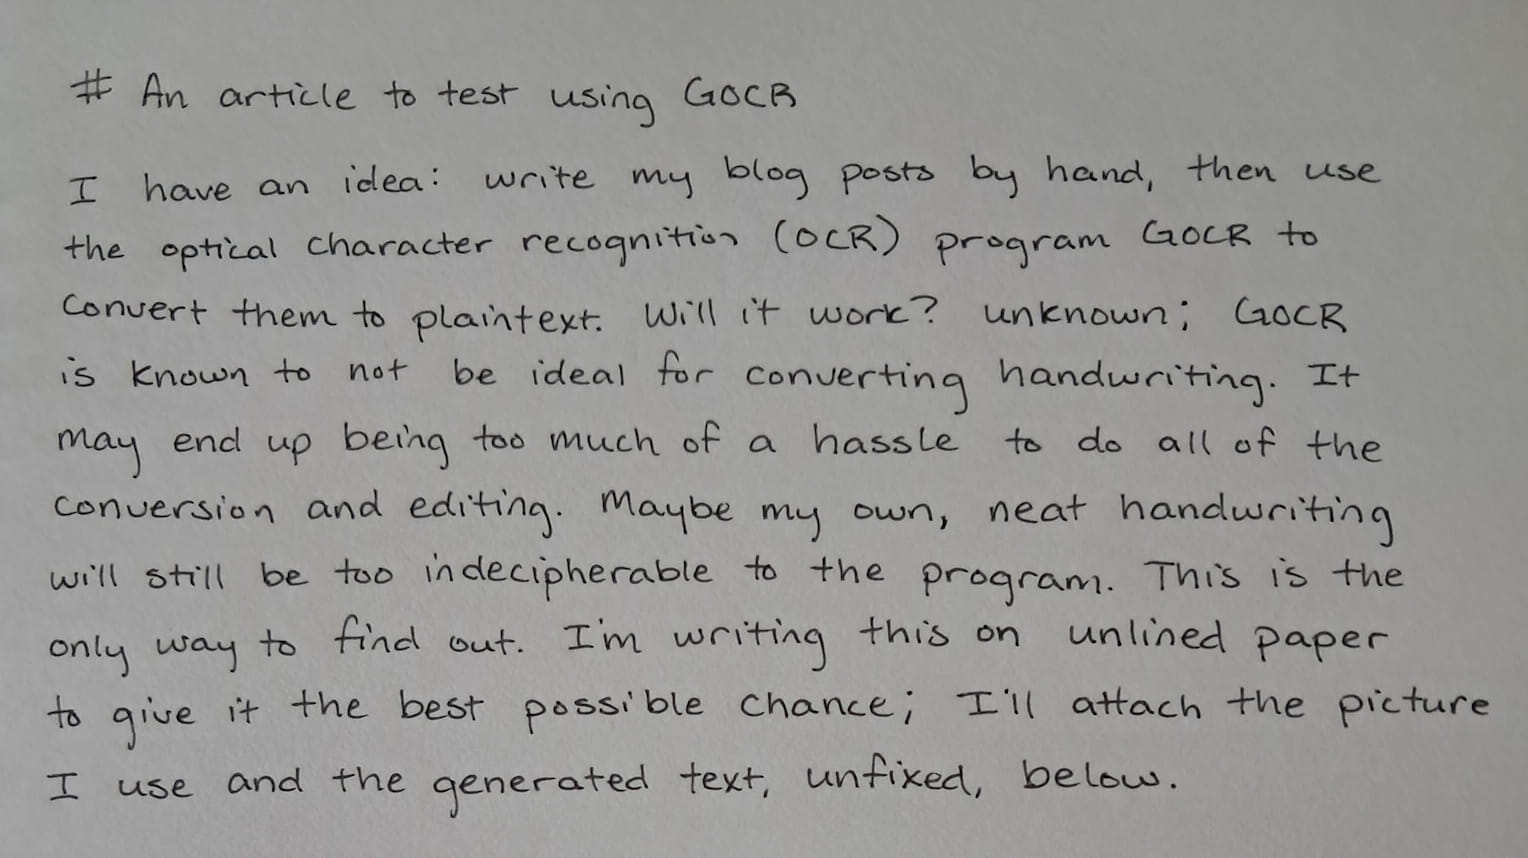 # An article to test using GOCR
I have an idea: write my blog posts by hand, then use
the optical character recognition (OCR) program GOCR to
convert them to plaintext. Will it work? unknown; GOCR
is known to not be ideal for converting handwriting. It
may end up being too much of a hassle to do all of the
conversion and editing. Maybe my own, neat handwriting
will still be too indecipherable to the program. This is the
only way to find out. I'm writing this on unlined paper
to give it the best possible chance; I'll attach the picture
I use and the generated text, unfixed, below.